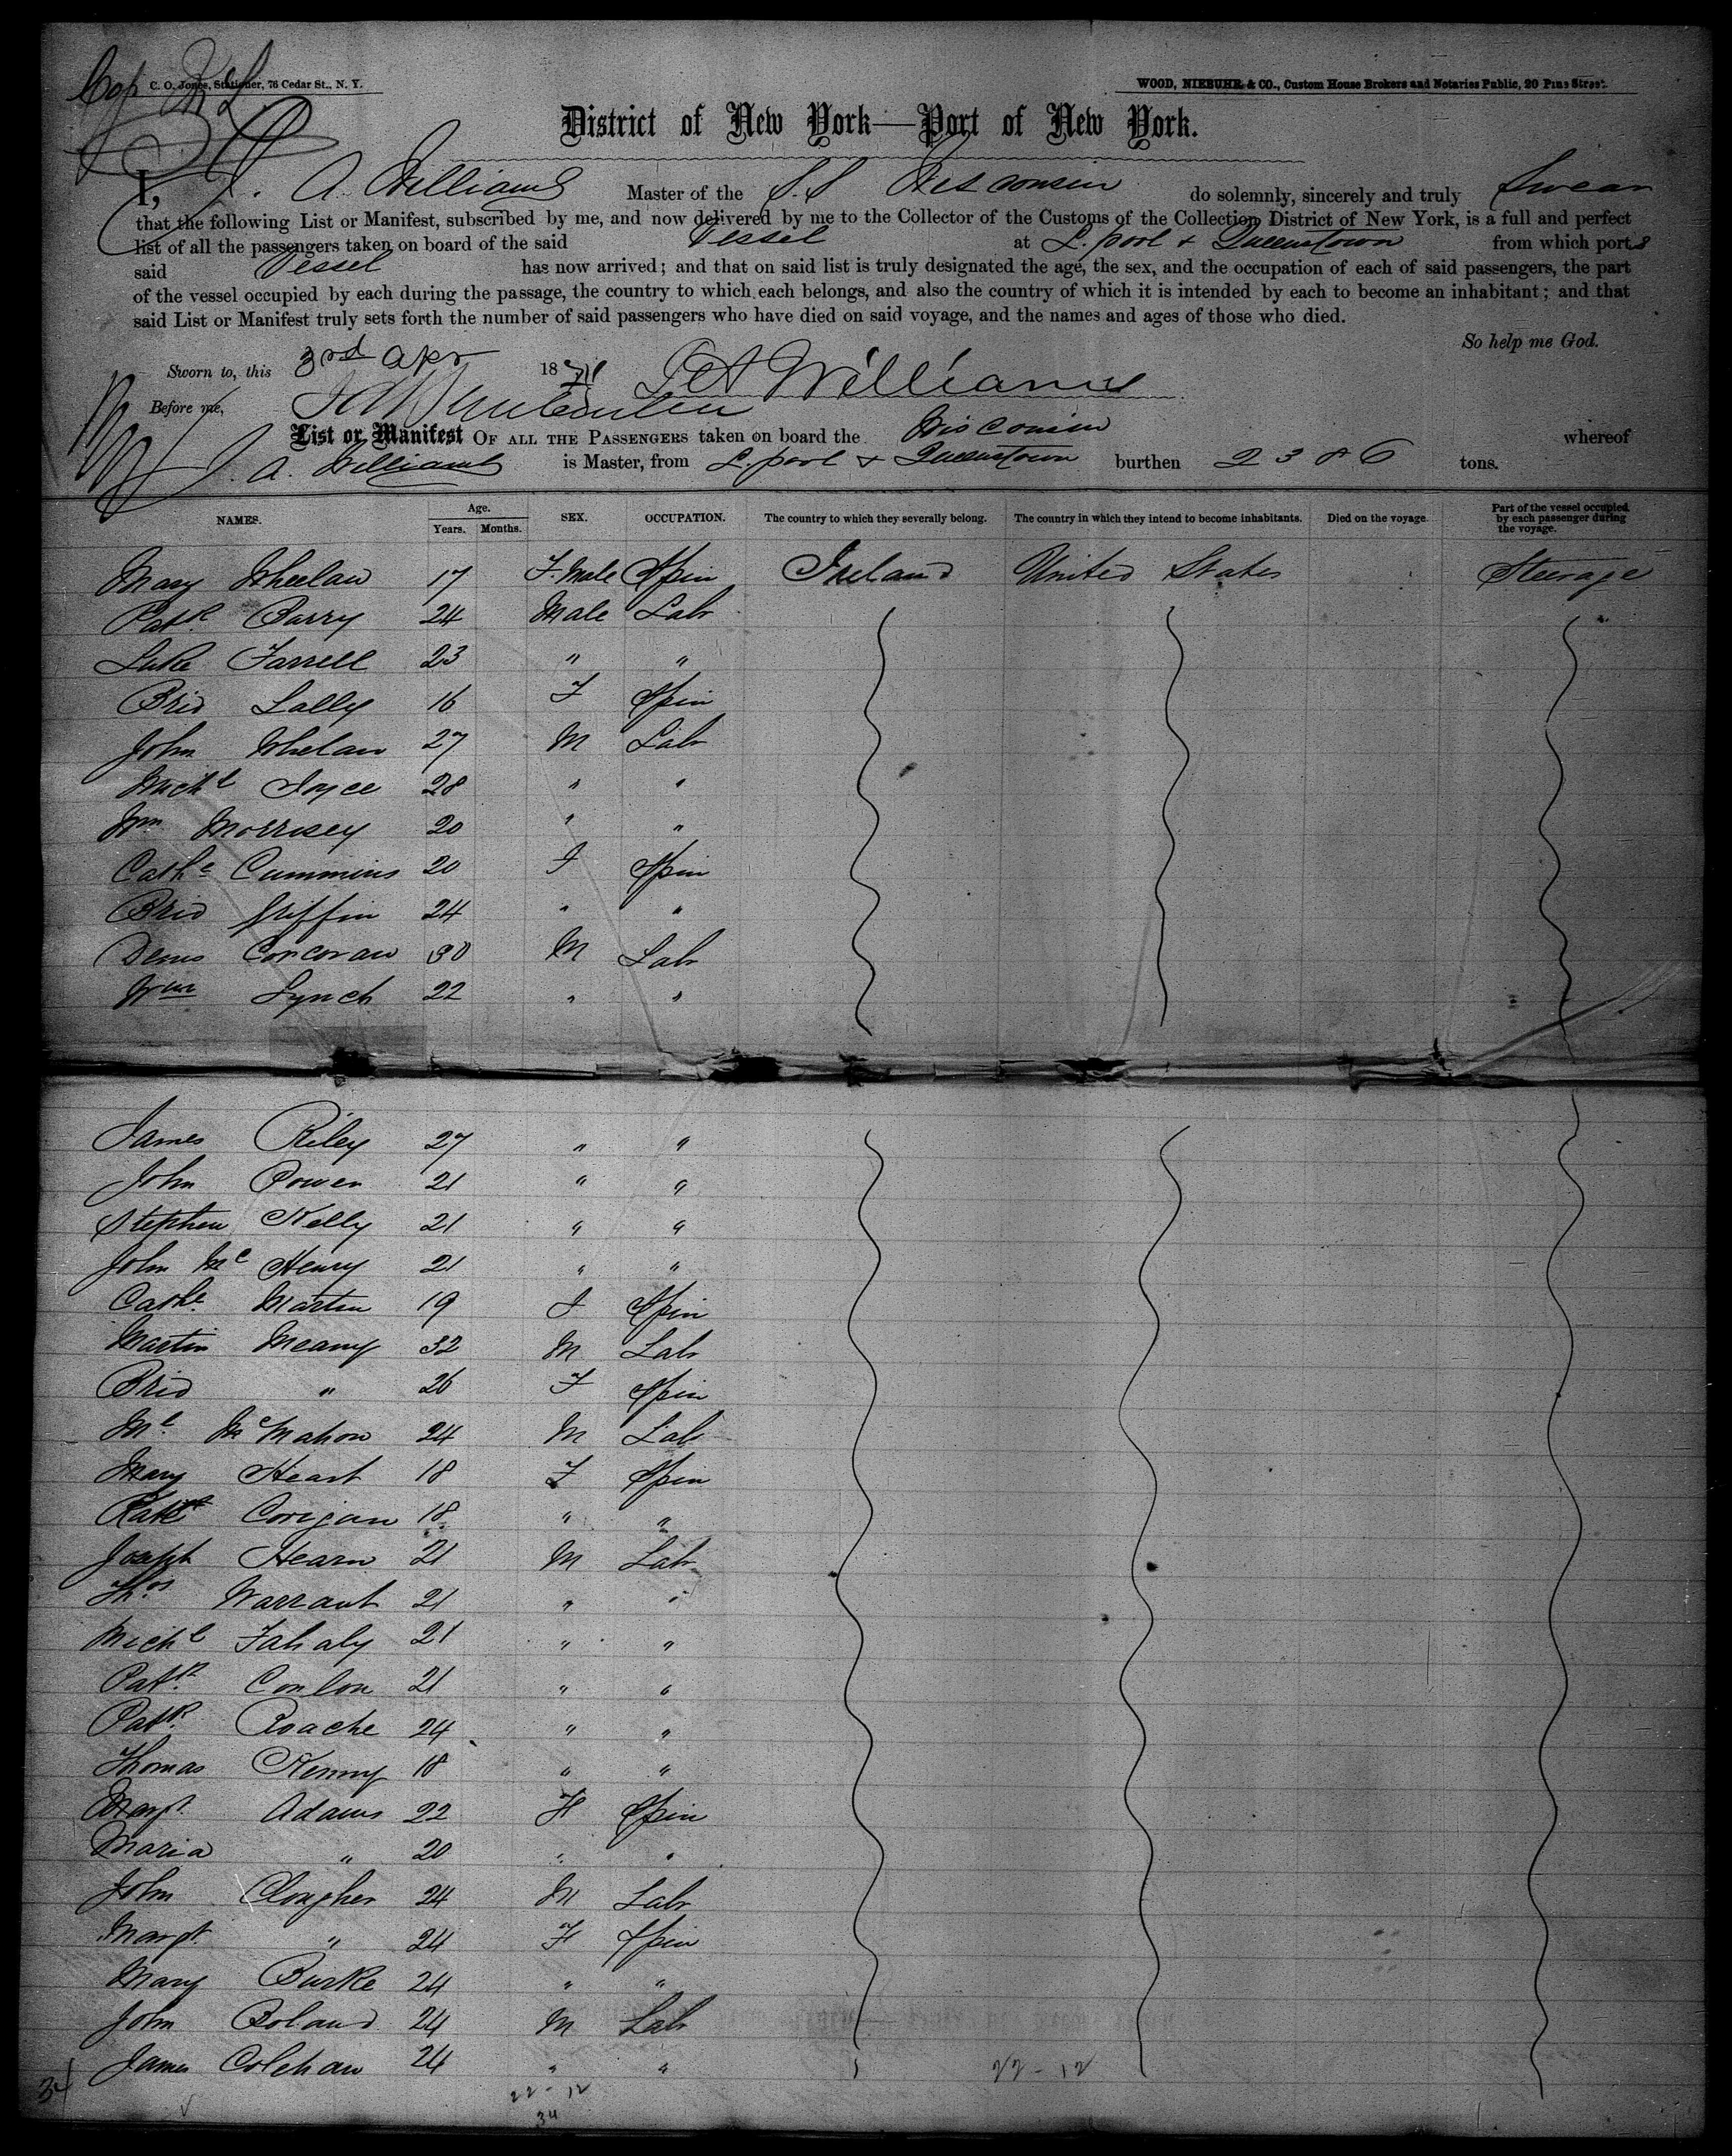 C. O. Jones, Stationer, 76 Cedar St., N. Y.
WOOD, NIEBUHR & CO., Custom House Brokers and Notaries Public, 20 Pine Street.
District of New York—Port of New York.
I, J. A. Williams Master of the S.S Wisconsin do solemnly, sincerely and truly Swear
that the following List or Manifest, subscribed by me, and now delivered by me to the Collector of the Customs of the Collection District of New York, is a full and perfect
list of all the passengers taken on board of the said Vessel at L.pool & Queenstown from which ports
said Vessel has now arrived; and that on said list is truly designated the age, the sex, and the occupation of each of said passengers, the part
of the vessel occupied by each during the passage, the country to which each belongs, and also the country of which it is intended by each to become an inhabitant; and that
said List or Manifest truly sets forth the number of said passengers who have died on said voyage, and the names and ages of those who died.
So help me God.
Sworn to, this 3rd Apr 18 Williams
Before me,
List or Manifest OF ALL THE PASSENGERS taken on board the Wisconsin whereof
J. A. Williams is Master, from L.pool & Queenstown burthen 2386 tons.
NAMES. Age. Years. Months. SEX. OCCUPATION. The country to which they severally belong. The country in which they intend to become inhabitants. Died on the voyage. Part of the vessel occupied by each passenger during the voyage.
Mary Wheelan 17 F.Male Spin Ireland United States Steerage
Patk. Barry 24 Male Labr
Luke Farrell 23 " "
Brid Lally 16 F Spin
John Whelan 27 M Labr
Michl Joyce 28 " "
Wm Morrisey 20 " "
Cathe Cummins 20 F Spin
Brid Griffin 24 " "
Denis Corcoran 30 M Labr
Wm Lynch 22 " "
James Riley 27 " "
John Power 21 " "
Stephen Kelly 21 " "
John Mc Henry 21 " "
Cathe. Martin 19 F Spin
Martin Meany 32 M Labr
Brid " 26 F Spin
Ml. McMahon 24 M Labr
Mary Heart 18 F Spin
Corigan 18 " "
Joseph Hearn 21 M Labr
Thos Warrant 21 " "
Michl Fahaly 21 " "
Patk. Conlon 21 " "
Patk. Roache 24 " "
Thomas Kenny 18 " "
Margt. Adams 22 F Spin
Maria " 20 " "
John Clougher 24 M Labr
Margt. " 24 F Spin
Mary Burke 24 " "
John Boland 24 M Labr
James Colehan 24 " "
34 22-12 22-12
34